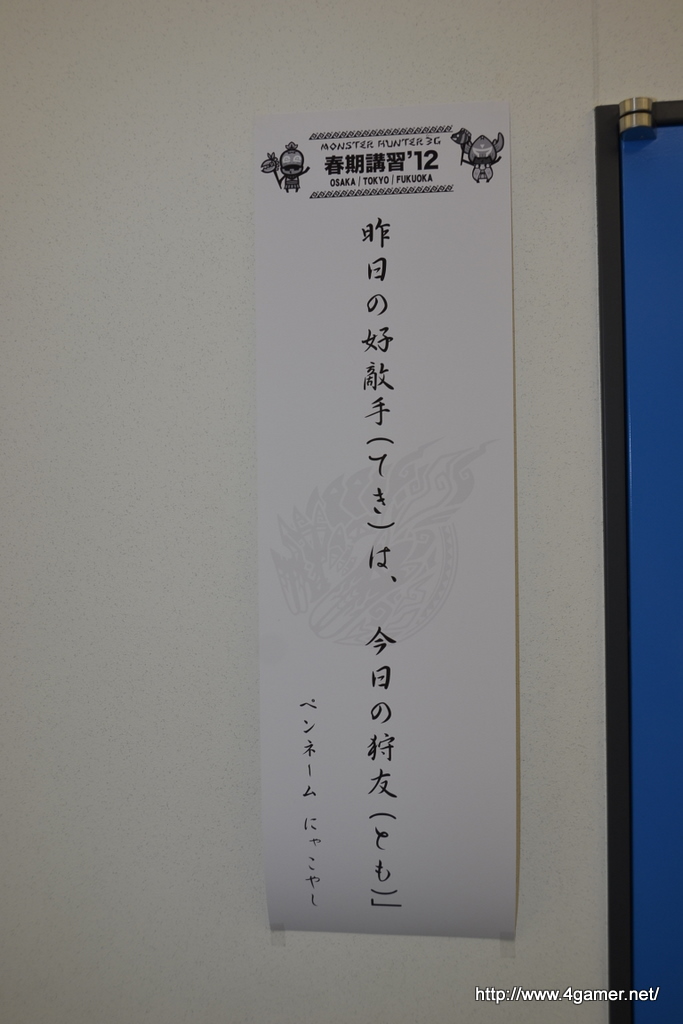 MONSTER HUNTER 3G
春期講習'12
OSAKA / TOKYO / FUKUOKA
昨日の好敵手(てき)は、 今日の狩友(とも)」
ペンネーム にゃこやし
http://www.4gamer.net/